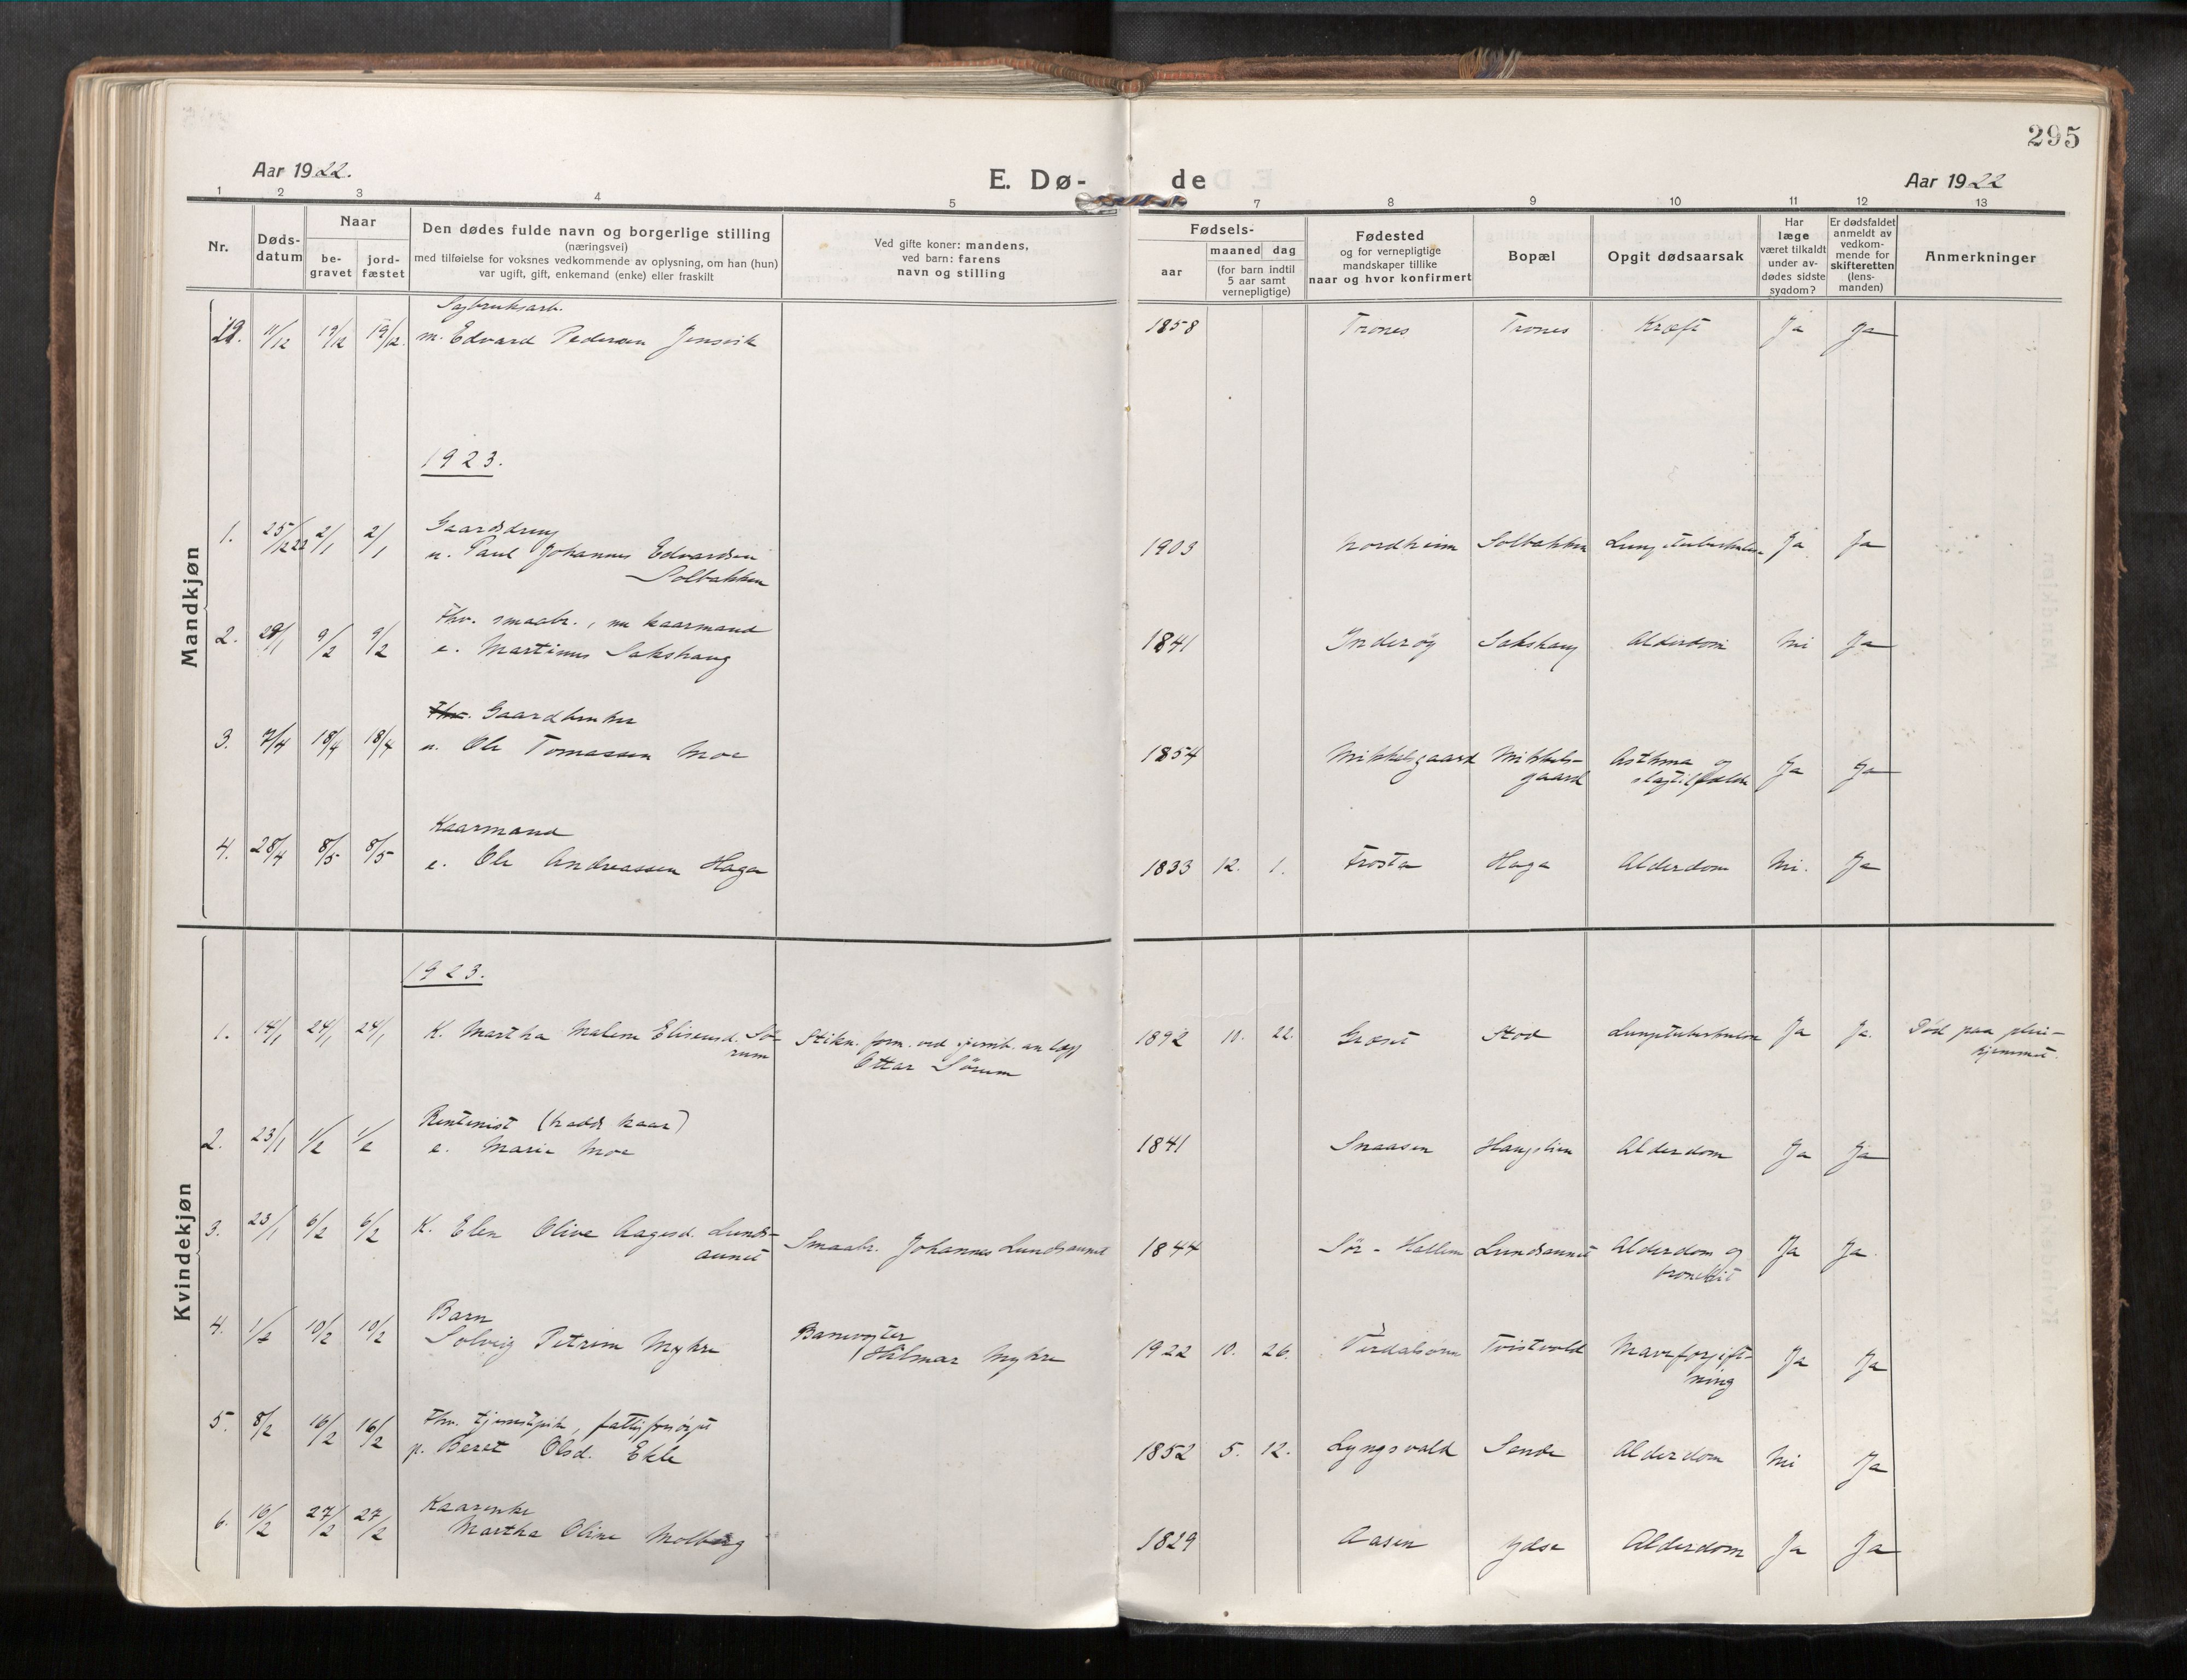 295
Aar 1922.
E. Dø- de
Aar 1922
1 2 3 4 5 7 8 9 10 11 12 13
Nr.
Døds-
datum
Naar
be-
gravet
jord-
fæstet
Den dødes fulde navn og borgerlige stilling
(næringsvei)
med tilføielse for voksnes vedkommende av oplysning, om han (hun)
var ugift, gift, enkemand (enke) eller fraskilt
Ved gifte koner: mandens,
ved barn: farens
navn og stilling
Fødsels-
aar
maaned dag
(for barn indtil
5 aar samt
vernepligtige)
Fødested
og for vernepligtige
mandskaper tillike
naar og hvor konfirmert
Bopæl
Opgit dødsaarsak
Har
læge
været tilkaldt
under av-
dødes sidste
sygdom?
Er dødsfaldet
anmeldt av
vedkom-
mende for
skifteretten
(lens-
manden)
Anmerkninger
Mandkjøn
Sagbruksarb.
19. 11/12 19/12 19/12. m. Edvard Pedersen Jensvik 1858 Trones Trones Kræft Ja Ja
1923.
Gaardsdreng
1. 25/12 22 2/1 2/1 u. Paul Johannes Edvardsen 1903 Nordheim Solbakken Lungetuberkulose Ja Ja
Solbakken
Fhv. smaabr., nu kaarmand
2. 29/1 9/2 9/2 e. Martinus Sakshaug 1841 Inderøy Sakshaug Alderdom Nei Ja
Fhv. Gaardbruker
3. 7/4 18/4 18/4 u. Ole Tomassen Moe 1854 Mikkelsgaard Mikkels- Asthma og Ja Ja
gaard slagtilfælde
Kaarmand
4. 28/4 8/5 8/5 e. Ole Andreassen Haga 1833 12. 1. Frosta Haga Alderdom Nei. Ja
Kvindekjøn
1923.
1. 14/1 24/1 24/1 K. Martha Malene Eliseusd. Sø- Stikn. form. ved jernb. anlæg 1892 10. 22. Græset Stod Lungetuberkulose Ja Ja. Død paa pleie-
rum Ottar Sørum hjemmet.
Rentenist (hadde kaar)
2. 23/1 1/2 1/2 e. Marie Moe 1841 Snaasen Haugslien Alderdom Ja Ja
3. 23/1 6/2 6/2 K. Elen Olive Aagesd. Lunds- Smaabr. Johannes Lundsaunet 1844 Sør-Hallem Lundsaunet Alderdom og Ja Ja
aunet bronkit
Barn
4. 1/2 10/2 10/2 Solveig Petrine Myhre Banevogter Hilmar Myhre 1922 10. 26. Verdalsøren Tvistvold Maveforgift- Ja Ja
ning
Fhv. tjenestepike, fattigforsørget
5. 8/2 16/2 16/2 p. Beret Olsd. Ekle 1852 5. 12. Lyngsvald Sende Alderdom Nei Ja
Kaarenke
6. 19/2 27/2 27/2 Martha Oline Molberg 1829 Aasen Ydse Alderdom Ja Ja